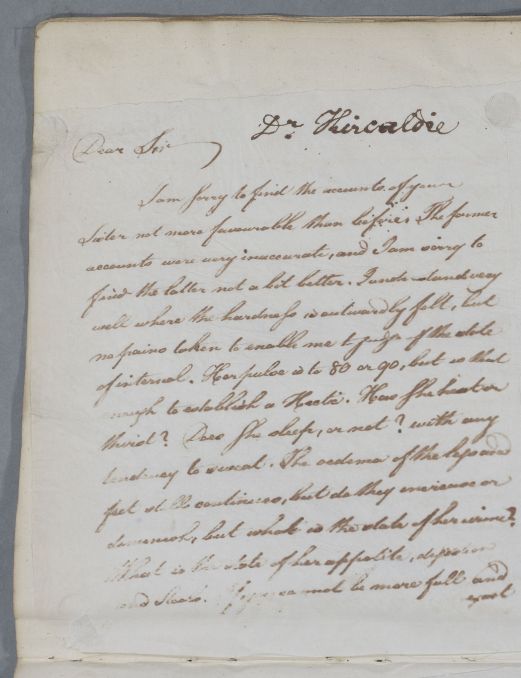 Dr Kircaldie
Dear Sir
I am sorry to find the accounts of your
Sister not more favourable than before. The former
accounts were very inaccurate, and I am sorry to
find the latter not a bit better. I understand very
well where the hardness is outwardly felt, but
no pains taken to enable me to judge of the state
of internal. Her pulse is to 80 or 90, but is that
enough to establish a Hectic. Has She heat or
thirst? Does She sleep, or not? with any
tendency to sweat. The oedema of the legs and
feet still continues, but do they increase or
diminish, but what is the state of her urine?
What is the state of her appetite, digestion
and Stools. If you cannot be more full and
exact